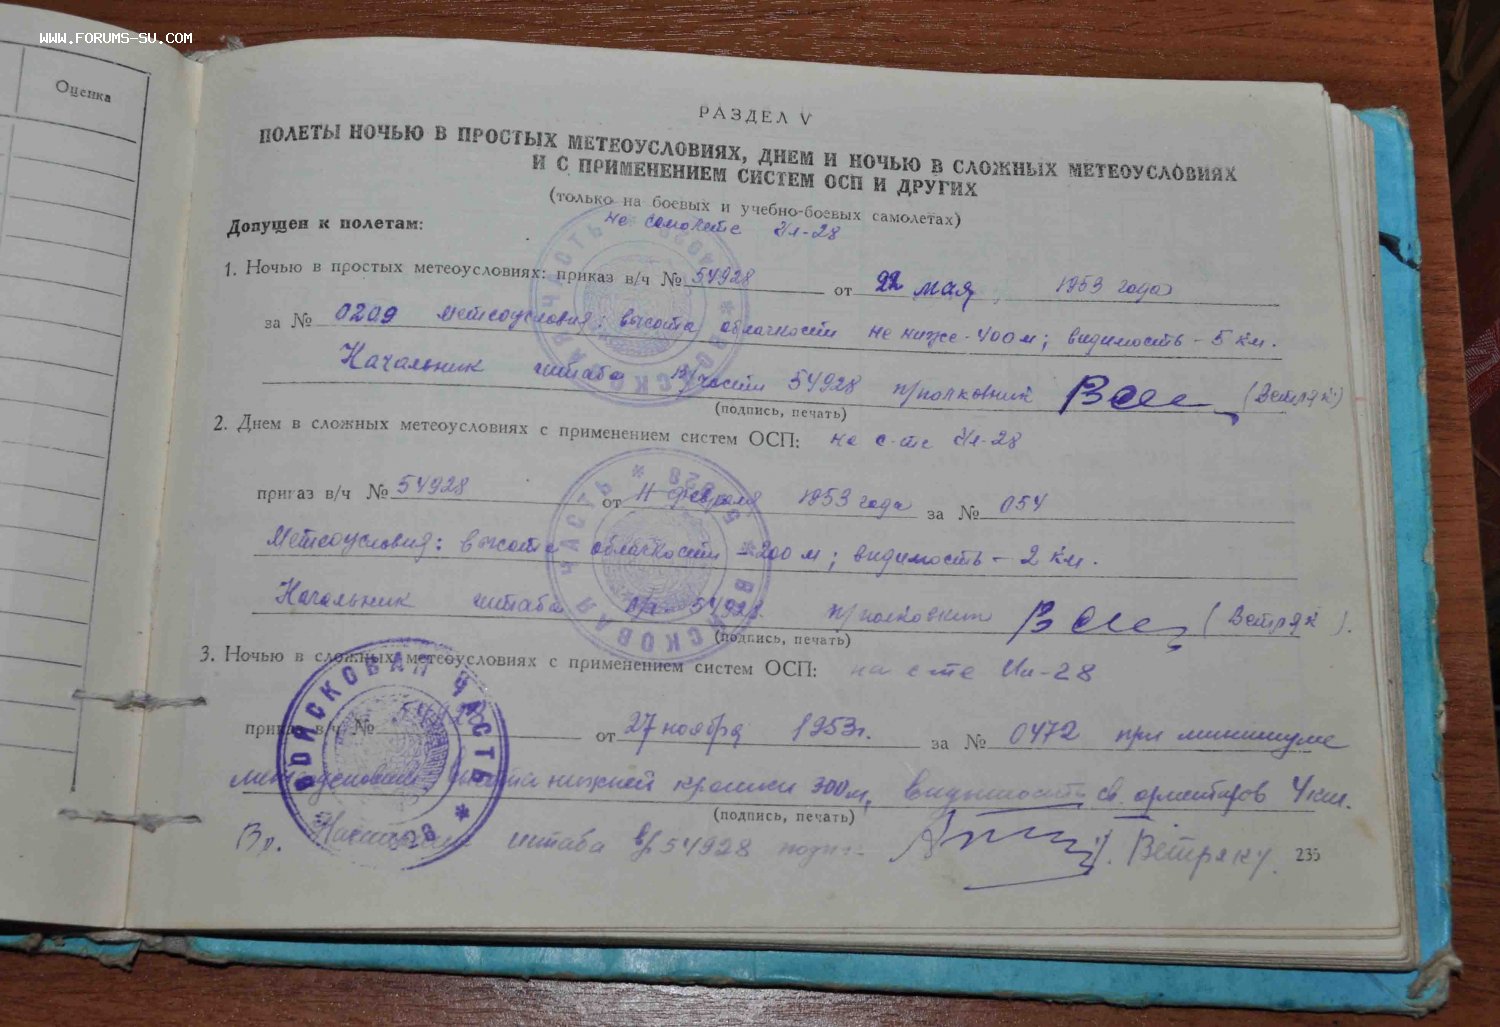 WWW.FORUMS-SU.COM
Оценка
РАЗДЕЛ V
ПОЛЕТЫ НОЧЬЮ В ПРОСТЫХ МЕТЕОУСЛОВИЯХ, ДНЕМ И НОЧЬЮ В СЛОЖНЫХ МЕТЕОУСЛОВИЯХ
И С ПРИМЕНЕНИЕМ СИСТЕМ ОСП И ДРУГИХ
(только на боевых и учебно-боевых самолетах)
Допущен к полетам: на самолете Ил-28
1. Ночью в простых метеоусловиях: приказ в/ч № 54928 от 22 мая 1953 года
за № 0209 метеоусловия: высота облачности не ниже - 400 м; видимость - 5 км.
Начальник штаба в/части 54928 п/полковник (Ветряк)
(подпись, печать)
2. Днем в сложных метеоусловиях с применением систем ОСП: на с-те Ил-28
приказ в/ч № 54928 от 11 февраля 1953 года за № 054
Метеоусловия: высота облачности - 200 м; видимость - 2 км.
Начальник штаба в/ч 54928 п/полковник (Ветряк).
(подпись, печать)
3. Ночью в сложных метеоусловиях с применением систем ОСП: на с-те Ил-28
приказ в/ч № 54928 от 27 ноября 1953г. за № 0472 при минимуме
метеоусловий: высота нижней кромки 300 м, видимость св. ориентиров 4 км.
(подпись, печать)
Вр. Начальник штаба в/ч 54928 подп. Ветряк
235
ВОЙСКОВАЯ ЧАСТЬ
ВОЙСКОВАЯ ЧАСТЬ
ВОЙСКОВАЯ ЧАСТЬ